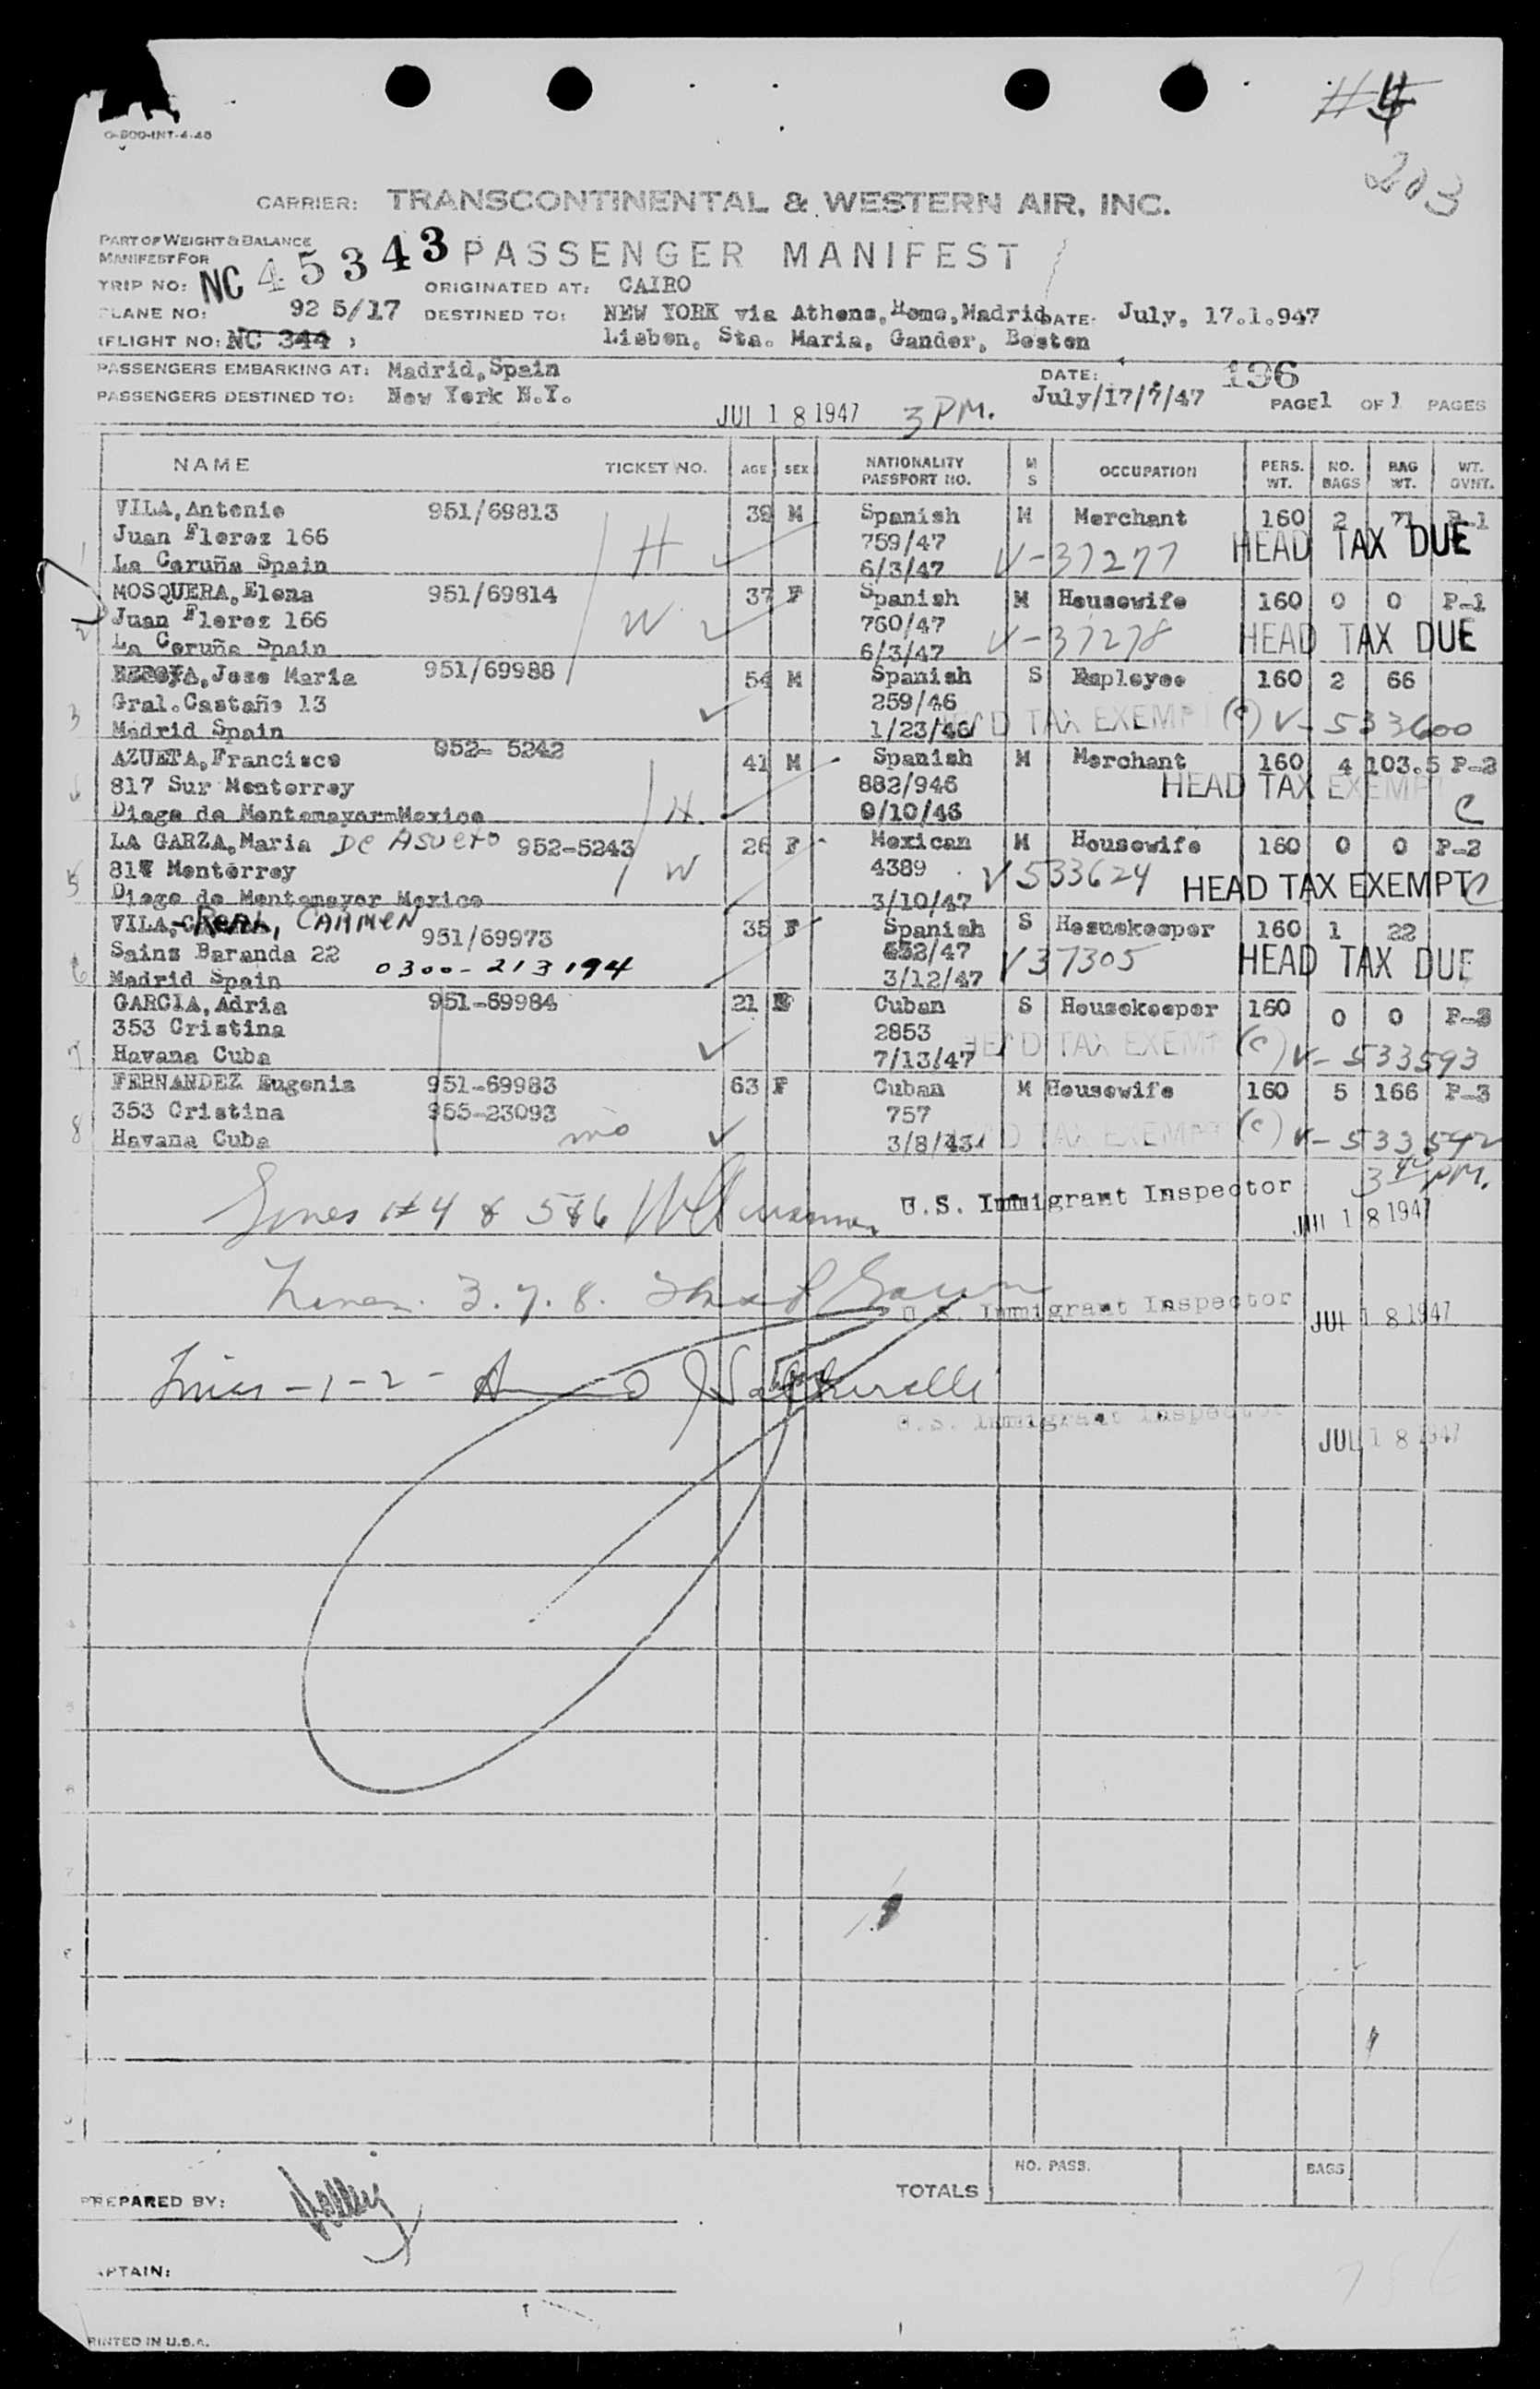 #4
203
G-800-INT-4-46
CARRIER: TRANSCONTINENTAL & WESTERN AIR, INC.
PART OF WEIGHT & BALANCE
MANIFEST FOR
PASSENGER MANIFEST
TRIP NO: NC 45343 ORIGINATED AT: CAIRO
PLANE NO: 92 5/17 DESTINED TO: NEW YORK via Athens, Rome, Madrid DATE: July, 17.1.947
(FLIGHT NO: NC 344 ) Lisben, Sta. Maria, Gander, Besten
PASSENGERS EMBARKING AT: Madrid, Spain DATE: 196
PASSENGERS DESTINED TO: New York N.Y. July/17/7/47 PAGE 1 OF 1 PAGES
JUL 18 1947 3 PM.
NAME TICKET NO. AGE SEX NATIONALITY PASSPORT NO. M S OCCUPATION PERS. WT. NO. BAGS BAG WT. WT. GVNT.
VILA, Antonie 951/69813 39 M Spanish M Merchant 160 2 71 P-1
1 Juan Flerez 166 H 759/47 V-37277 HEAD TAX DUE
La Caruña Spain 6/3/47
MOSQUERA, Elena 951/69814 37 F Spanish M Housewife 160 0 0 P-1
2 Juan Flerez 166 W 760/47 V-37278 HEAD TAX DUE
La Ceruña Spain 6/3/47
Jose Maria 951/69988 54 M Spanish S Employee 160 2 66
3 Gral. Castaño 13 259/46 HEAD TAX EXEMPT (C) V-533600
Madrid Spain 1/23/46
AZUETA, Francisco 952-5242 41 M Spanish M Merchant 160 4 103.5 P-2
817 Sur Monterrey H. 882/946 HEAD TAX EXEMPT
Diego de Montemayorm Mexico 9/10/46 C
LA GARZA, Maria De Asueto 952-5243 26 F Mexican M Housewife 160 0 0 P-2
5 817 Monterrey W 4389 V533624 HEAD TAX EXEMPT C
Diego de Montemayor Mexico 3/10/47
VILA-REAL, CARMEN 951/69973 35 F Spanish S Hosuekeeper 160 1 22
Sainz Baranda 22 632/47 V37305 HEAD TAX DUE
6 Madrid Spain 0300-213194 3/12/47
GARCIA, Adria 951-69984 21 Cuban S Housekeeper 160 0 0 P-3
353 Cristina 2853 HEAD TAX EXEMPT (C) V-533593
7 Havana Cuba 7/13/47
FERNANDEZ Eugenia 951-69983 63 F Cuban M Housewife 160 5 166 P-3
353 Cristina 955-23093 757
8 Havana Cuba 3/8/43 HEAD TAX EXEMPT (C) V-533592
3 40 PM.
Lines #4 & 5&6 U.S. Immigrant Inspector JUL 18 1947
Lines. 3.7.8. U.S. Immigrant Inspector JUL 18 1947
Lines -1-2-
U.S. Immigrant Inspector JUL 18 1947
TOTALS NO. PASS. BAGS
PREPARED BY:
APTAIN:
RINTED IN U.S.A.